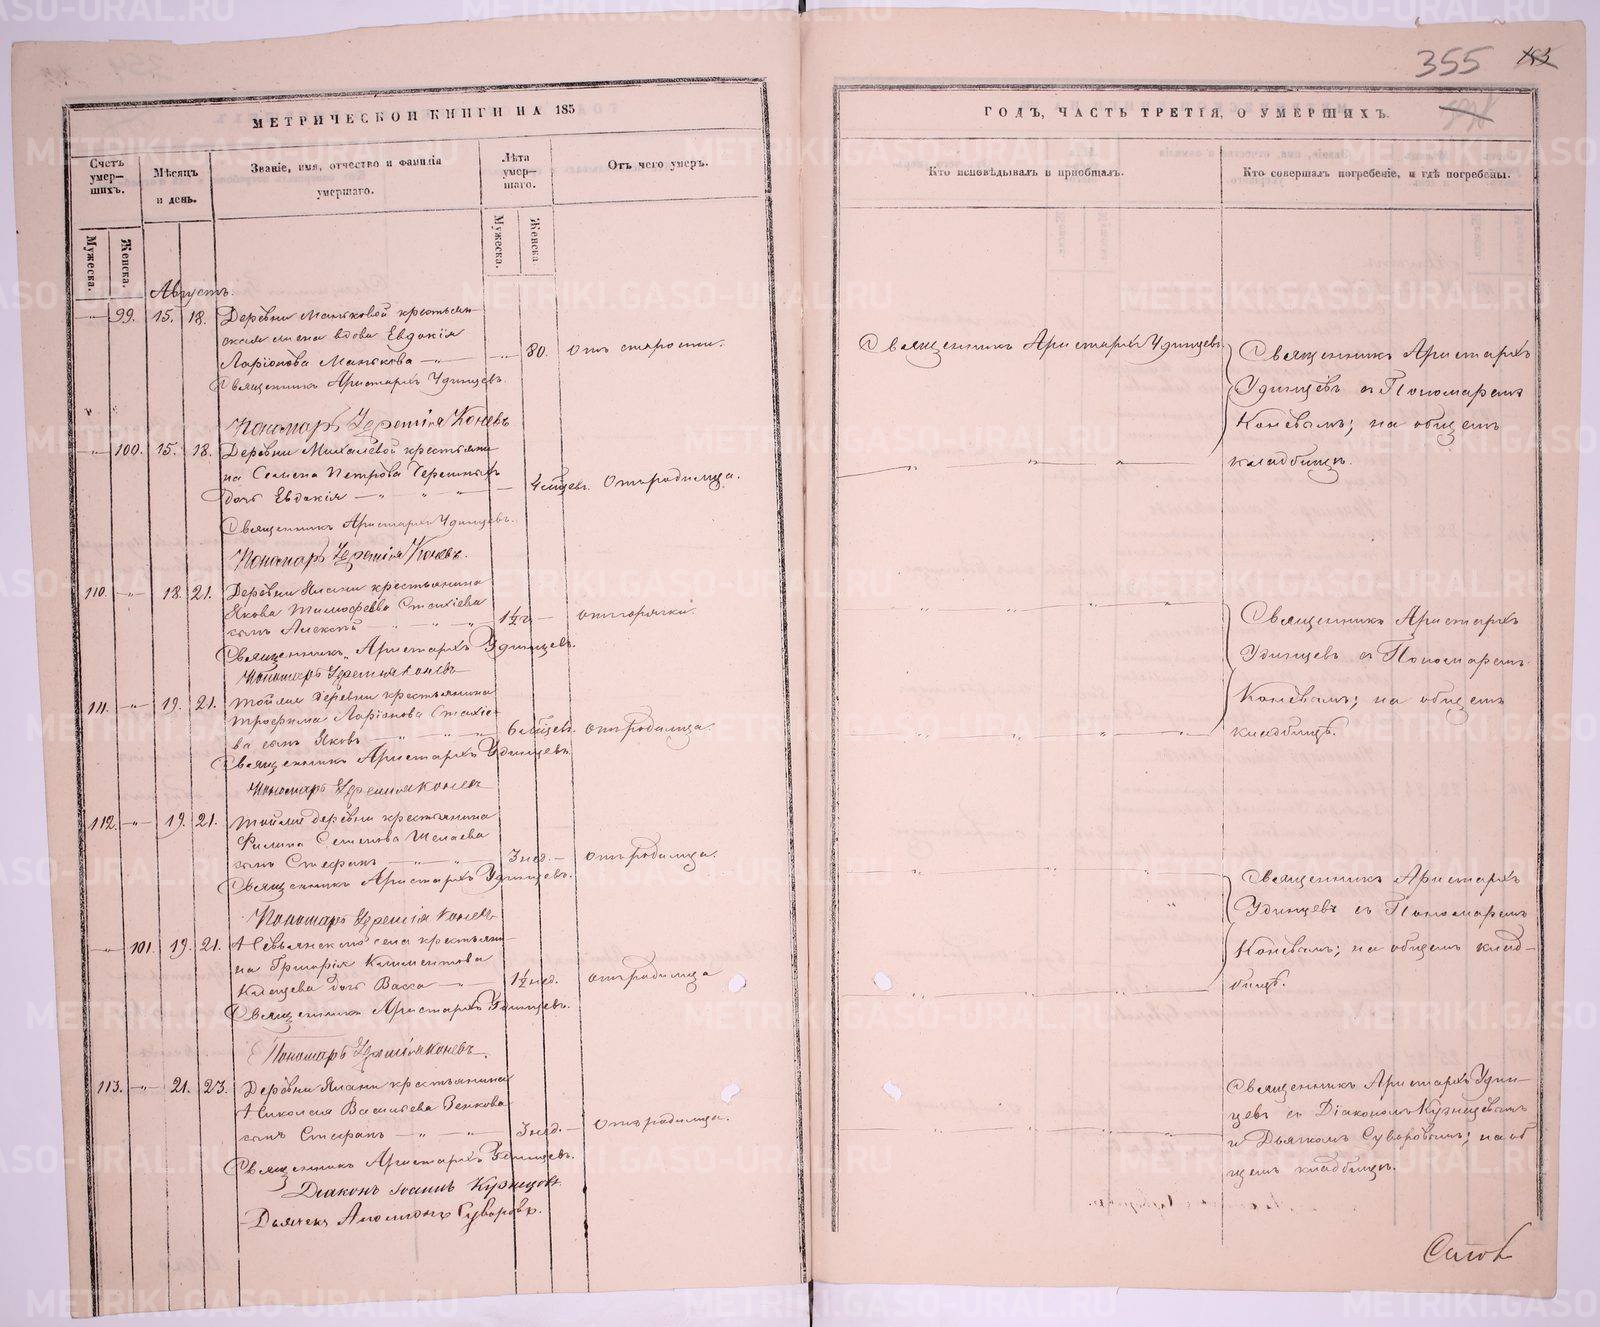 МЕТРИЧЕСКОЙ КНИГИ НА 185
Счетъ умер—шихъ.
Мѣсяцъ и день.
Званіе, имя, отчество и фамилія умершаго.
Лѣта умер—шаго.
Отъ чего умеръ.
Мужеска.
Женска.
Мужеска.
Женска
Августъ.
99. 15. 18. Деревни Маньковой крестьян-
ская жена вдова Евдокія
Ларіонова Манькова 80. Отъ старости.
Священникъ Аристархъ Удинцевъ.
Пономарь Іеремія Коневъ
100. 15. 18. Деревни Михалевой крестьяни-
на Семена Петрова
дочь Евдокія 4 мѣцев. Отъ родимца.
Священникъ Аристархъ Удинцевъ.
Пономарь Іеремія Коневъ.
110. 18. 21. Деревни Ялани крестьянина
Якова Тимофеева Стахіева
сынъ Алексѣй 1½ г. отъ горячки.
Священникъ Аристархъ Удинцевъ.
Пономарь Іеремія Коневъ
111. 19. 21. Тойже деревни крестьянина
Трофима Ларіонова Стахіе-
ва сынъ Яковъ 6 мѣцев. отъ родимца.
Священникъ Аристархъ Удинцевъ.
Пономарь Іеремія Коневъ
112. 19. 21. Тойже деревни крестьянина
Филипа Семенова
сынъ Стефанъ 3 нед. отъ родимца.
Священникъ Аристархъ Удинцевъ.
Пономарь Іеремія Коневъ
101. 19. 21. Невьянскаго села крестьяни-
на Григорія Климентова
Клещева дочь Васса 1½ нед. отъ родимца
Священникъ Аристархъ Удинцевъ.
Пономарь Іеремія Коневъ.
113. 21. 23. Деревни Ялани крестьянина
Николая Васильева Зенкова
сынъ Стефанъ 3 нед. Отъ родимца.
Священникъ Аристархъ Удинцевъ.
Діаконъ Іоаннъ Кузнецовъ.
Дьячекъ Аполлонъ Суворовъ.
355
ГОДЪ, ЧАСТЬ ТРЕТІЯ, О УМЕРШИХЪ.
Кто исповѣдывалъ и пріобщалъ.
Кто совершалъ погребеніе, и гдѣ погребены.
Священникъ Аристархъ Удинцевъ
Священникъ Аристархъ
Удинцевъ съ Пономаремъ
Коневымъ; на общемъ
кладбищѣ.
Священникъ Аристархъ
Удинцевъ съ Пономаремъ
Коневымъ; на общемъ
кладбищѣ.
Священникъ Аристархъ
Удинцевъ съ Пономаремъ
Коневымъ; на общемъ клад-
бищѣ.
Священникъ Аристархъ Удин-
цевъ съ Діакономъ Кузнецовымъ
и Дьячкомъ Суворовымъ; на об
щемъ кладбищѣ.
METRIKI.GASO-URAL.RU